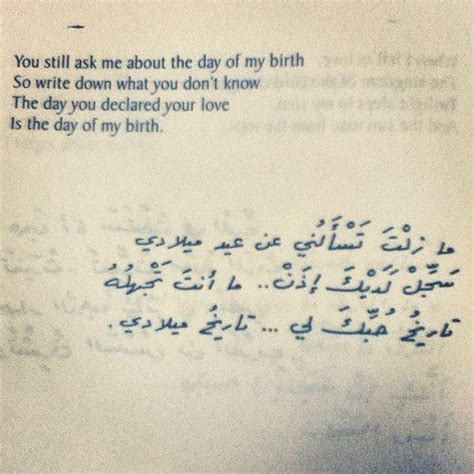 You still ask me about the day of my birth
So write down what you don't know
The day you declared your love
Is the day of my birth.
ما زلتَ تَسْأَلُني عن عيد ميلادي
سَجِّلْ لَدَيْكَ إذَنْ.. ما أنتَ تَجْهَلُهُ
تاريخُ حُبِّكَ لي ... تاريخُ ميلادي.